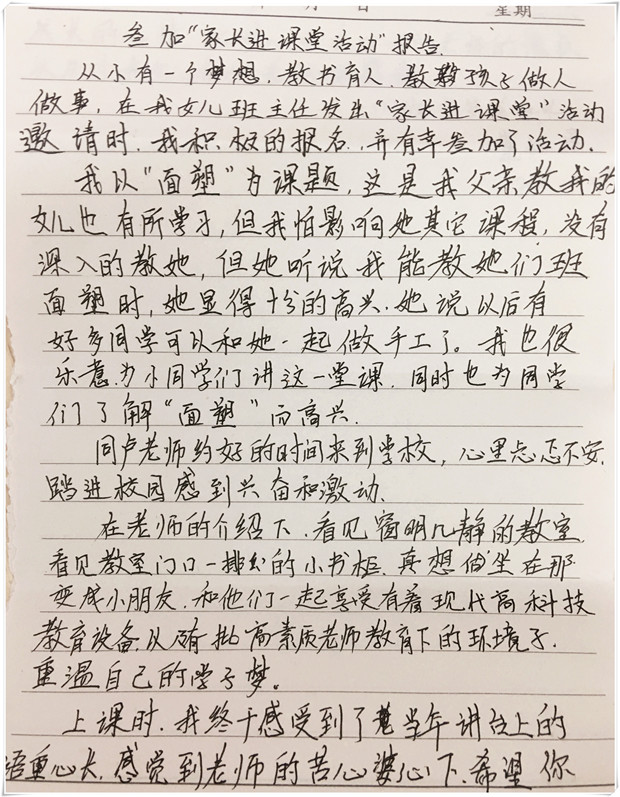 月 日 星期
参加“家长进课堂活动”报告.
从小有一个梦想,教书育人.教孩子做人
做事,在我女儿班主任发出“家长进课堂”活动
邀请时.我积极的报名.并有幸参加了活动.
我以“面塑”为课题,这是我父亲教我的
女儿也有所学习,但我怕影响她其它课程,没有
深入的教她,但她听说我能教她们班
面塑时,她显得十分的高兴.她说以后有
好多同学可以和她一起做手工了。我也很
乐意为小同学们讲这一堂课.同时也为同学
们了解“面塑”而高兴.
同卢老师约好的时间来到学校,心里忐忑不安.
踏进校园感到兴奋和激动.
在老师的介绍下.看见窗明几静的教室.
看见教室门口一排的小书柜.真想坐在那
变成小朋友.和他们一起享受有着现代高科技
教育设备.从批高素质老师教育下的环境子.
重温自己的学子梦。
上课时.我终于感受到了当年讲台上的
语重心长.感觉到老师的苦心婆心下.希望你